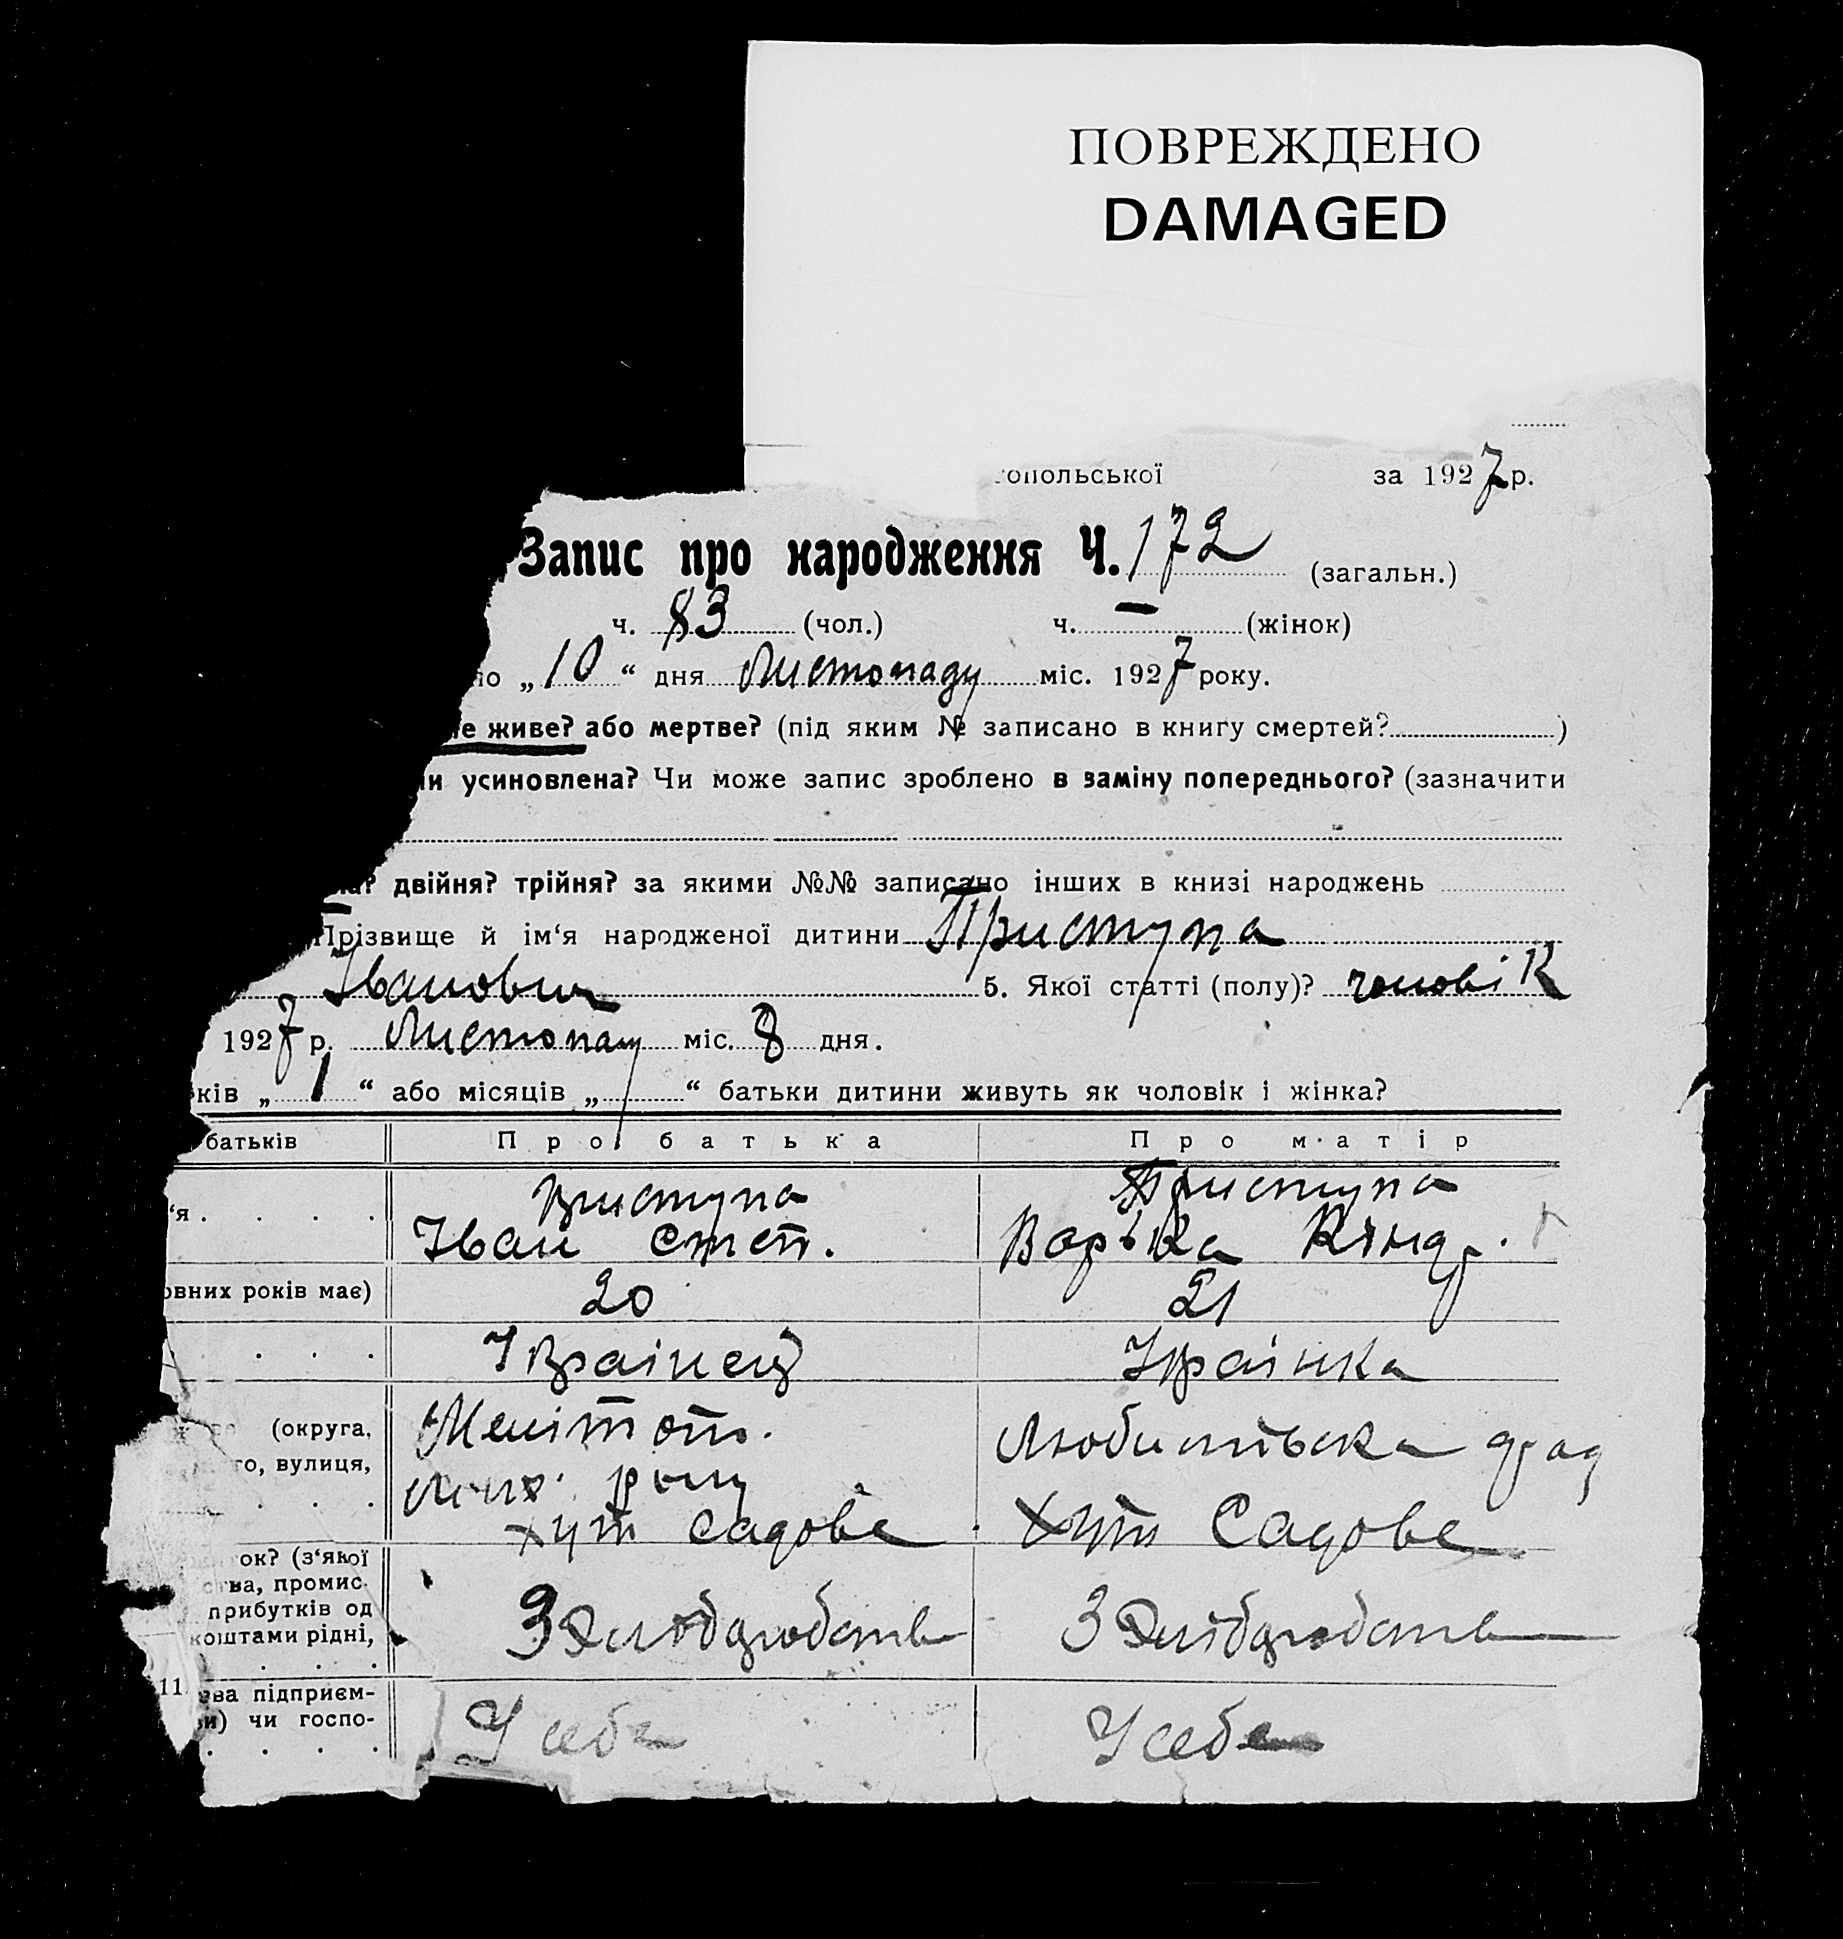 ПОВРЕЖДЕНО
DAMAGED
опольської за 1927 р.
Запис про народження Ч. 172 (загальн.)
ч. 83 (чол.) ч. — (жінок)
но „10“ дня Листопаду міс. 1927 року.
не живе? або мертве? (під яким № записано в книгу смертей? )
чи усиновлена? Чи може запис зроблено в заміну попереднього? (зазначити
двійня? трійня? за якими №№ записано інших в книзі народжень
Прізвище й ім'я народженої дитини Приступа
Іванович 5. Якої статті (полу)? чоловік
1927 р. Листопаду міс. 8 дня.
ків „1“ або місяців „ “ батьки дитини живуть як чоловік і жінка?
батьків Про батька Про матір
Приступа Приступа
'я . . . . Іван Степ. Варька Кінд.
овних років має) 20 21
. . . Українец Українка
(округа, Мелітоп.
го, вулиця, Любимівська
. . . хут Садове хут Садове
ок? (з'якої
ства, промис.
прибутків од З Хліборобства З Хліборобства
коштами рідні,
11 ва підприєм-
ви) чи госпо- У себе У себе